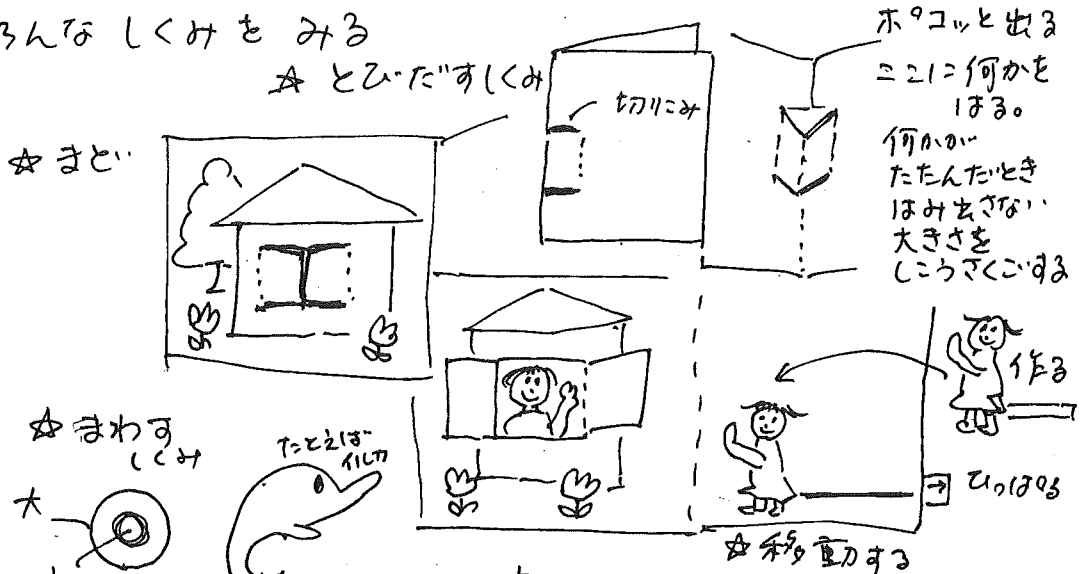 ろんな しくみを みる
☆ とびだすしくみ
切りこみ
ポコッと出る
ここに何かを
はる。
何かが
たたんだとき
はみ出さない
大きさを
しこうさくごする
☆ まど
作る
ひっぱる
☆ 移動する
☆ まわす
しくみ
大
たとえば
イルカ